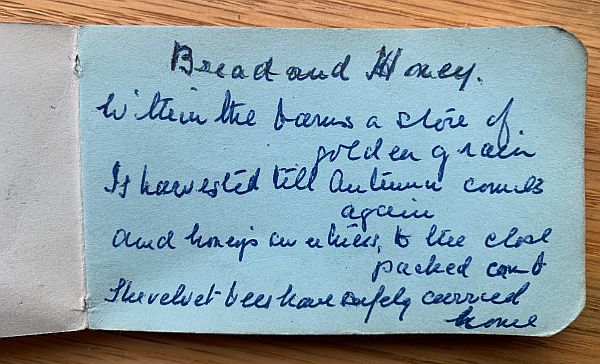 Bread and Honey.
Within the barns a store of
golden grain
Is harvested till Autumn comes
again
And honey's in hives, to the close
packed comb
The velvet bees have safely carried
home